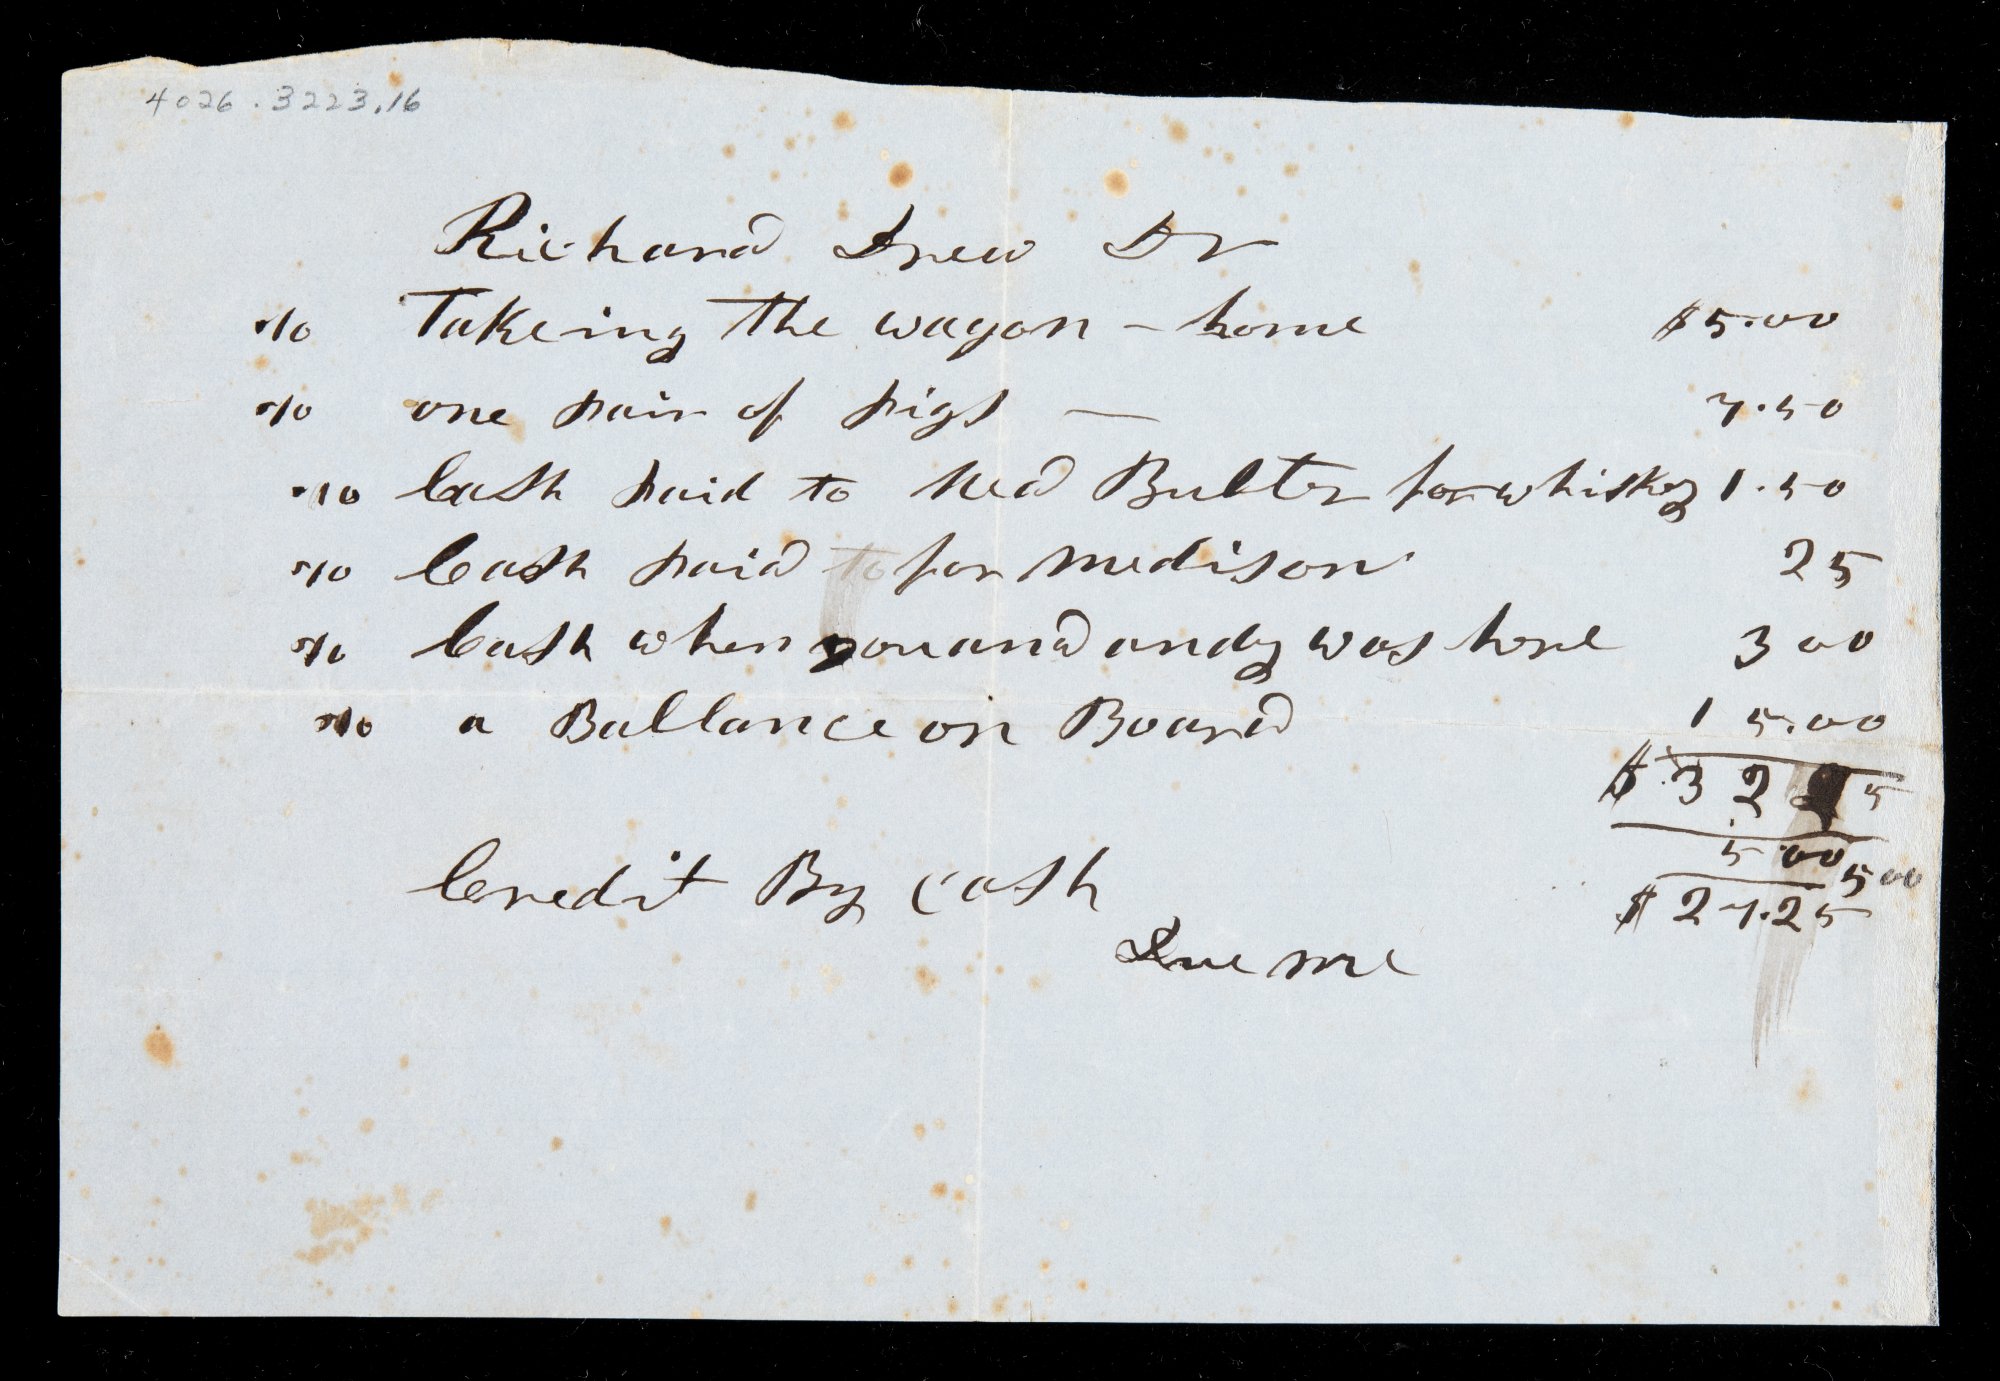 4026.3223.16
Richard Drew Dr
To Takeing The wagon - home $5.00
To one pair of pigs — 7.50
To Cash paid to Ned Bulter for whiskey 1.50
To Cash paid to for medison 25
To Cash when you and andy was here 3 00
To a Ballance on Board 15.00
$ 32 25
5.00
Credit By cash 5 00
$ 27.25
Due me